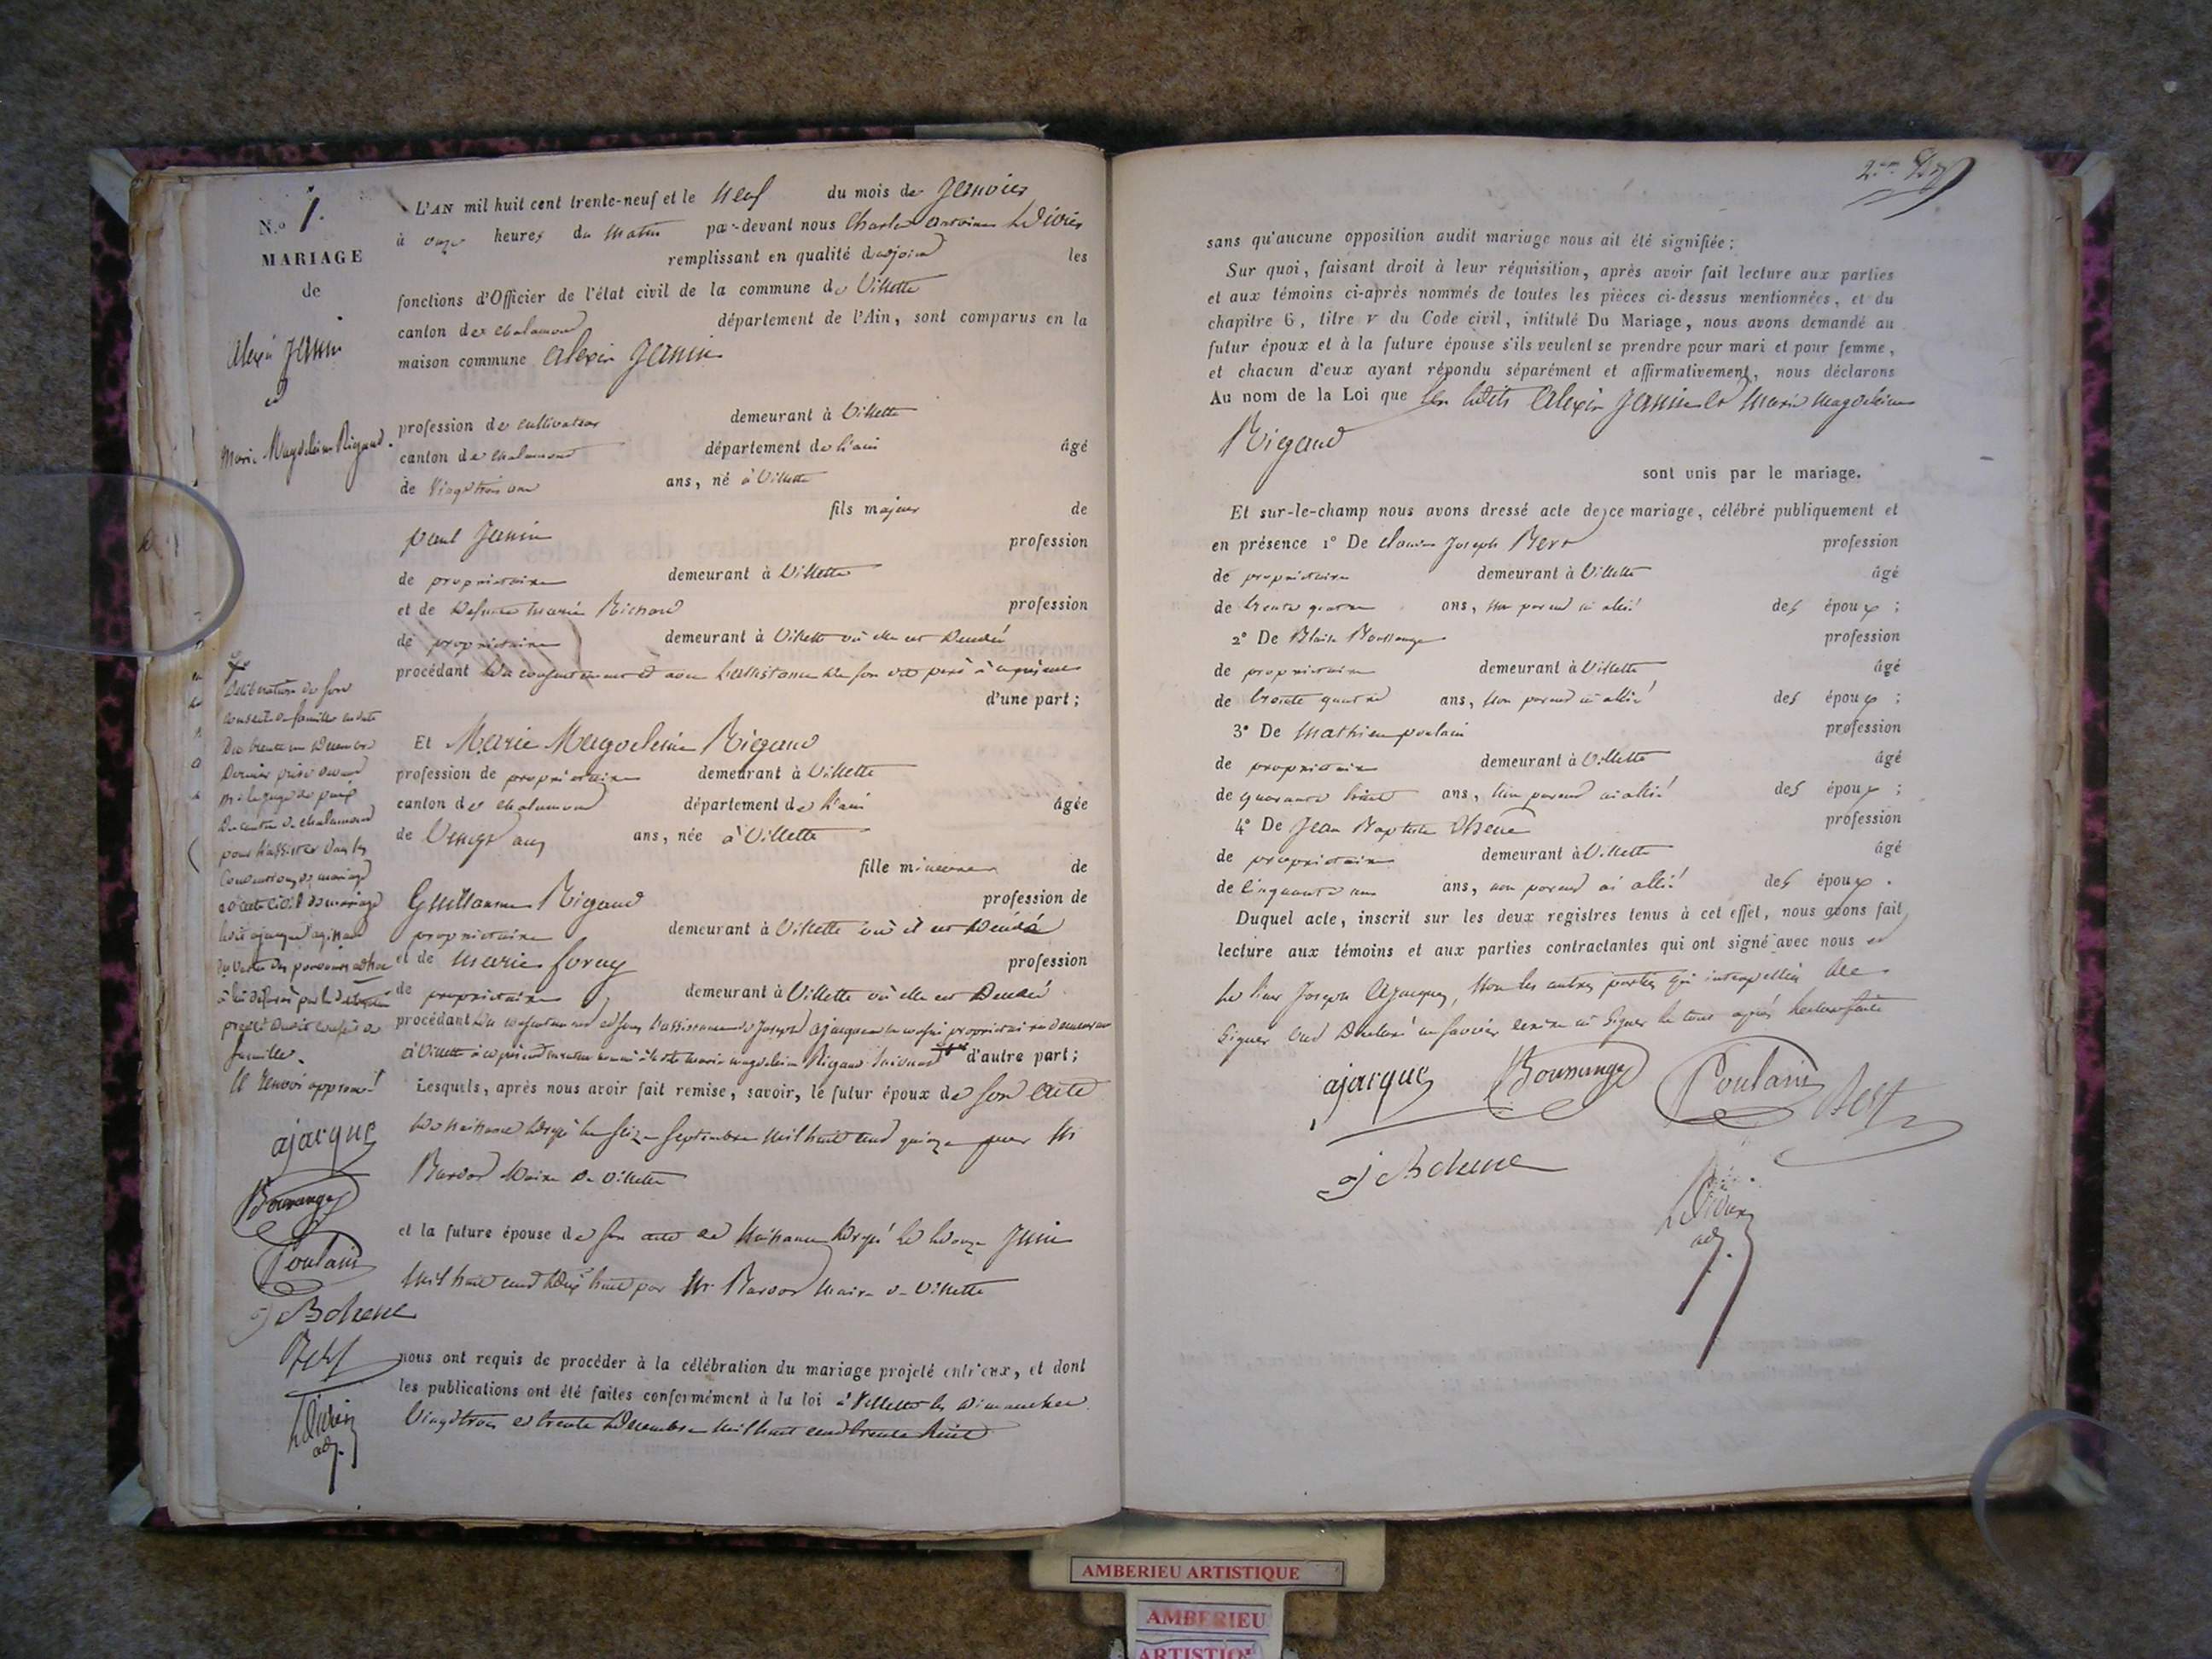 N.º 1.
MARIAGE
de
Alexis Janin
et
Marie Magdeleine Rigaud.
L'AN mil huit cent trente-neuf et le neuf du mois de Janvier
à onze heures du matin par-devant nous Charles Antoine
remplissant en qualité d'adjoint les
fonctions d'Officier de l'état civil de la commune de Villette
canton de chalamont département de l'Ain, sont comparus en la
maison commune alexis Janin
profession de cultivateur demeurant à Villette
canton de chalamont département de l'ain âgé
de Vingt trois ans ans, né à Villette
fils majeur de
paul Janin profession
de propriétaire demeurant à Villette
et de defunte marie profession
de propriétaire demeurant à Villette où elle est décédée
procédant du consentement et avec l'assistance de son dit père à ce présent
d'une part;
Et Marie Magdeleine Rigaud
profession de propriétaire demeurant à Villette
canton de chalamont département de l'ain âgée
de Vingt ans ans, née à Villette
fille mineure de
Guillaume Rigaud profession de
propriétaire demeurant à Villette où il est décédé
et de marie foray profession
de propriétaire demeurant à Villette où elle est décédée
procédant du consentement et sous l'assistance de Joseph ajacques propriétaire
à Villette à ce présent marie magdeleine Rigaud d'autre part;
Lesquels, après nous avoir fait remise, savoir, le futur époux de son acte
de naissance dressé le seize septembre mil huit cent quinze par Mr
maire de Villette
et la future épouse de son acte de naissance dressé le douze Juin
mil huit cent dix huit par Mr maire de Villette
nous ont requis de procéder à la célébration du mariage projeté entr'eux, et dont
les publications ont été faites conformément à la loi à Villette les dimanches
vingt trois et trente décembre mil huit cent trente huit
délibération de son
conseil de famille en date
du trente un décembre
dernier
mr le juge de paix
du canton de chalamont
pour l'assister dans les
conventions de mariage
et acte civil de mariage
famille.
le renvoi approuvé
ajacque
Boussange
Poulain
J B chene
adj.
sans qu'aucune opposition audit mariage nous ait été signifiée;
Sur quoi, faisant droit à leur réquisition, après avoir fait lecture aux parties
et aux témoins ci-après nommés de toutes les pièces ci-dessus mentionnées, et du
chapitre 6, titre V du Code civil, intitulé Du Mariage, nous avons demandé au
futur époux et à la future épouse s'ils veulent se prendre pour mari et pour femme,
et chacun d'eux ayant répondu séparément et affirmativement, nous déclarons
Au nom de la Loi que les dits Alexis Janin et Marie Magdeleine
Rigaud
sont unis par le mariage.
Et sur-le-champ nous avons dressé acte de ce mariage, célébré publiquement et
en présence 1º De Joseph profession
de propriétaire demeurant à Villette âgé
de trente quatre ans, non parent ni allié des époux;
2º De Blaise Boussange profession
de propriétaire demeurant à Villette âgé
de trente quatre ans, non parent ni allié des époux;
3º De Mathieu poulain profession
de propriétaire demeurant à Villette âgé
de quarante huit ans, non parent ni allié des époux;
4º De Jean Baptiste chene profession
de propriétaire demeurant à Villette âgé
de cinquante ans, non parent ni allié des époux.
Duquel acte, inscrit sur les deux registres tenus à cet effet, nous avons fait
lecture aux témoins et aux parties contractantes qui ont signé avec nous et
le sieur Joseph Ajacques, non les autres parties qui interpellées de
signer ont déclaré ne savoir écrire ni signer le tout après lecture faite
ajacque Boussange Poulain
J B chene
adj.
AMBERIEU ARTISTIQUE
AMBERIEU
ARTISTIQUE